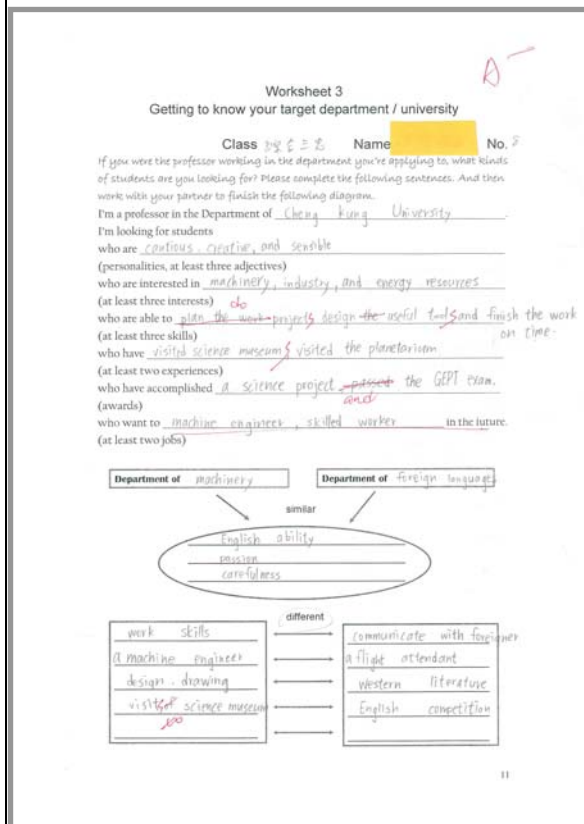 A-
Worksheet 3
Getting to know your target department / university
Class Name No. 8
If you were the professor working in the department you're applying to, what kinds
of students are you looking for? Please complete the following sentences. And then
work with your partner to finish the following diagram.
I'm a professor in the Department of Cheng Kung University.
I'm looking for students
who are cautious, creative, and sensible
(personalities, at least three adjectives)
who are interested in machinery, industry, and energy resources
(at least three interests) do
who are able to plan the work projects design the useful tools and finish the work
(at least three skills) on time.
who have visited science museums visited the planetarium
(at least two experiences)
who have accomplished a science project, passed the GEPT exam.
(awards) and
who want to machine engineer, skilled worker in the future.
(at least two jobs)
Department of machinery Department of foreign languages
similar
English ability
passion
carefulness
different
work skills communicate with foreigner
a machine engineer a flight attendant
design. drawing western literature
visit science museum English competition
11